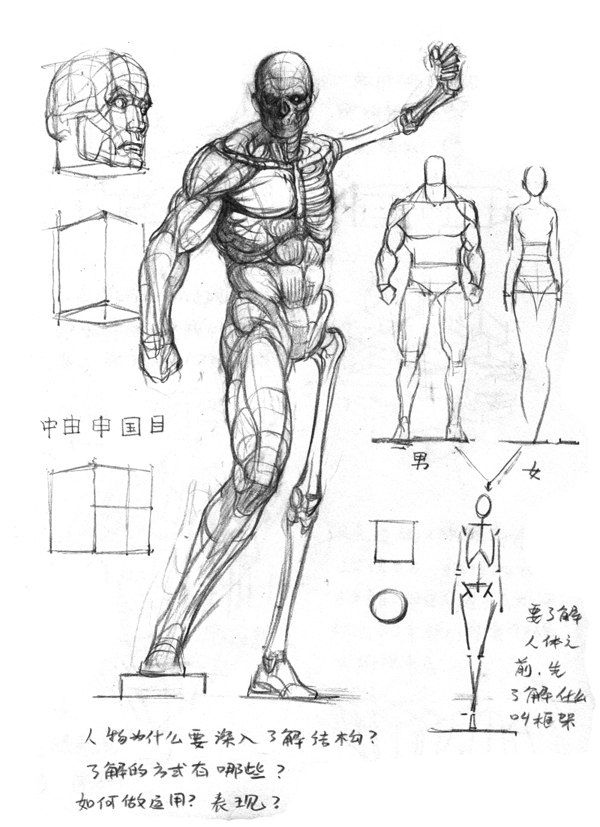 中由申国目
男
女
要了解
人体之
前，先
了解什么
叫框架
人物为什么要深入了解结构？
了解的方式有哪些？
如何做应用？表现？